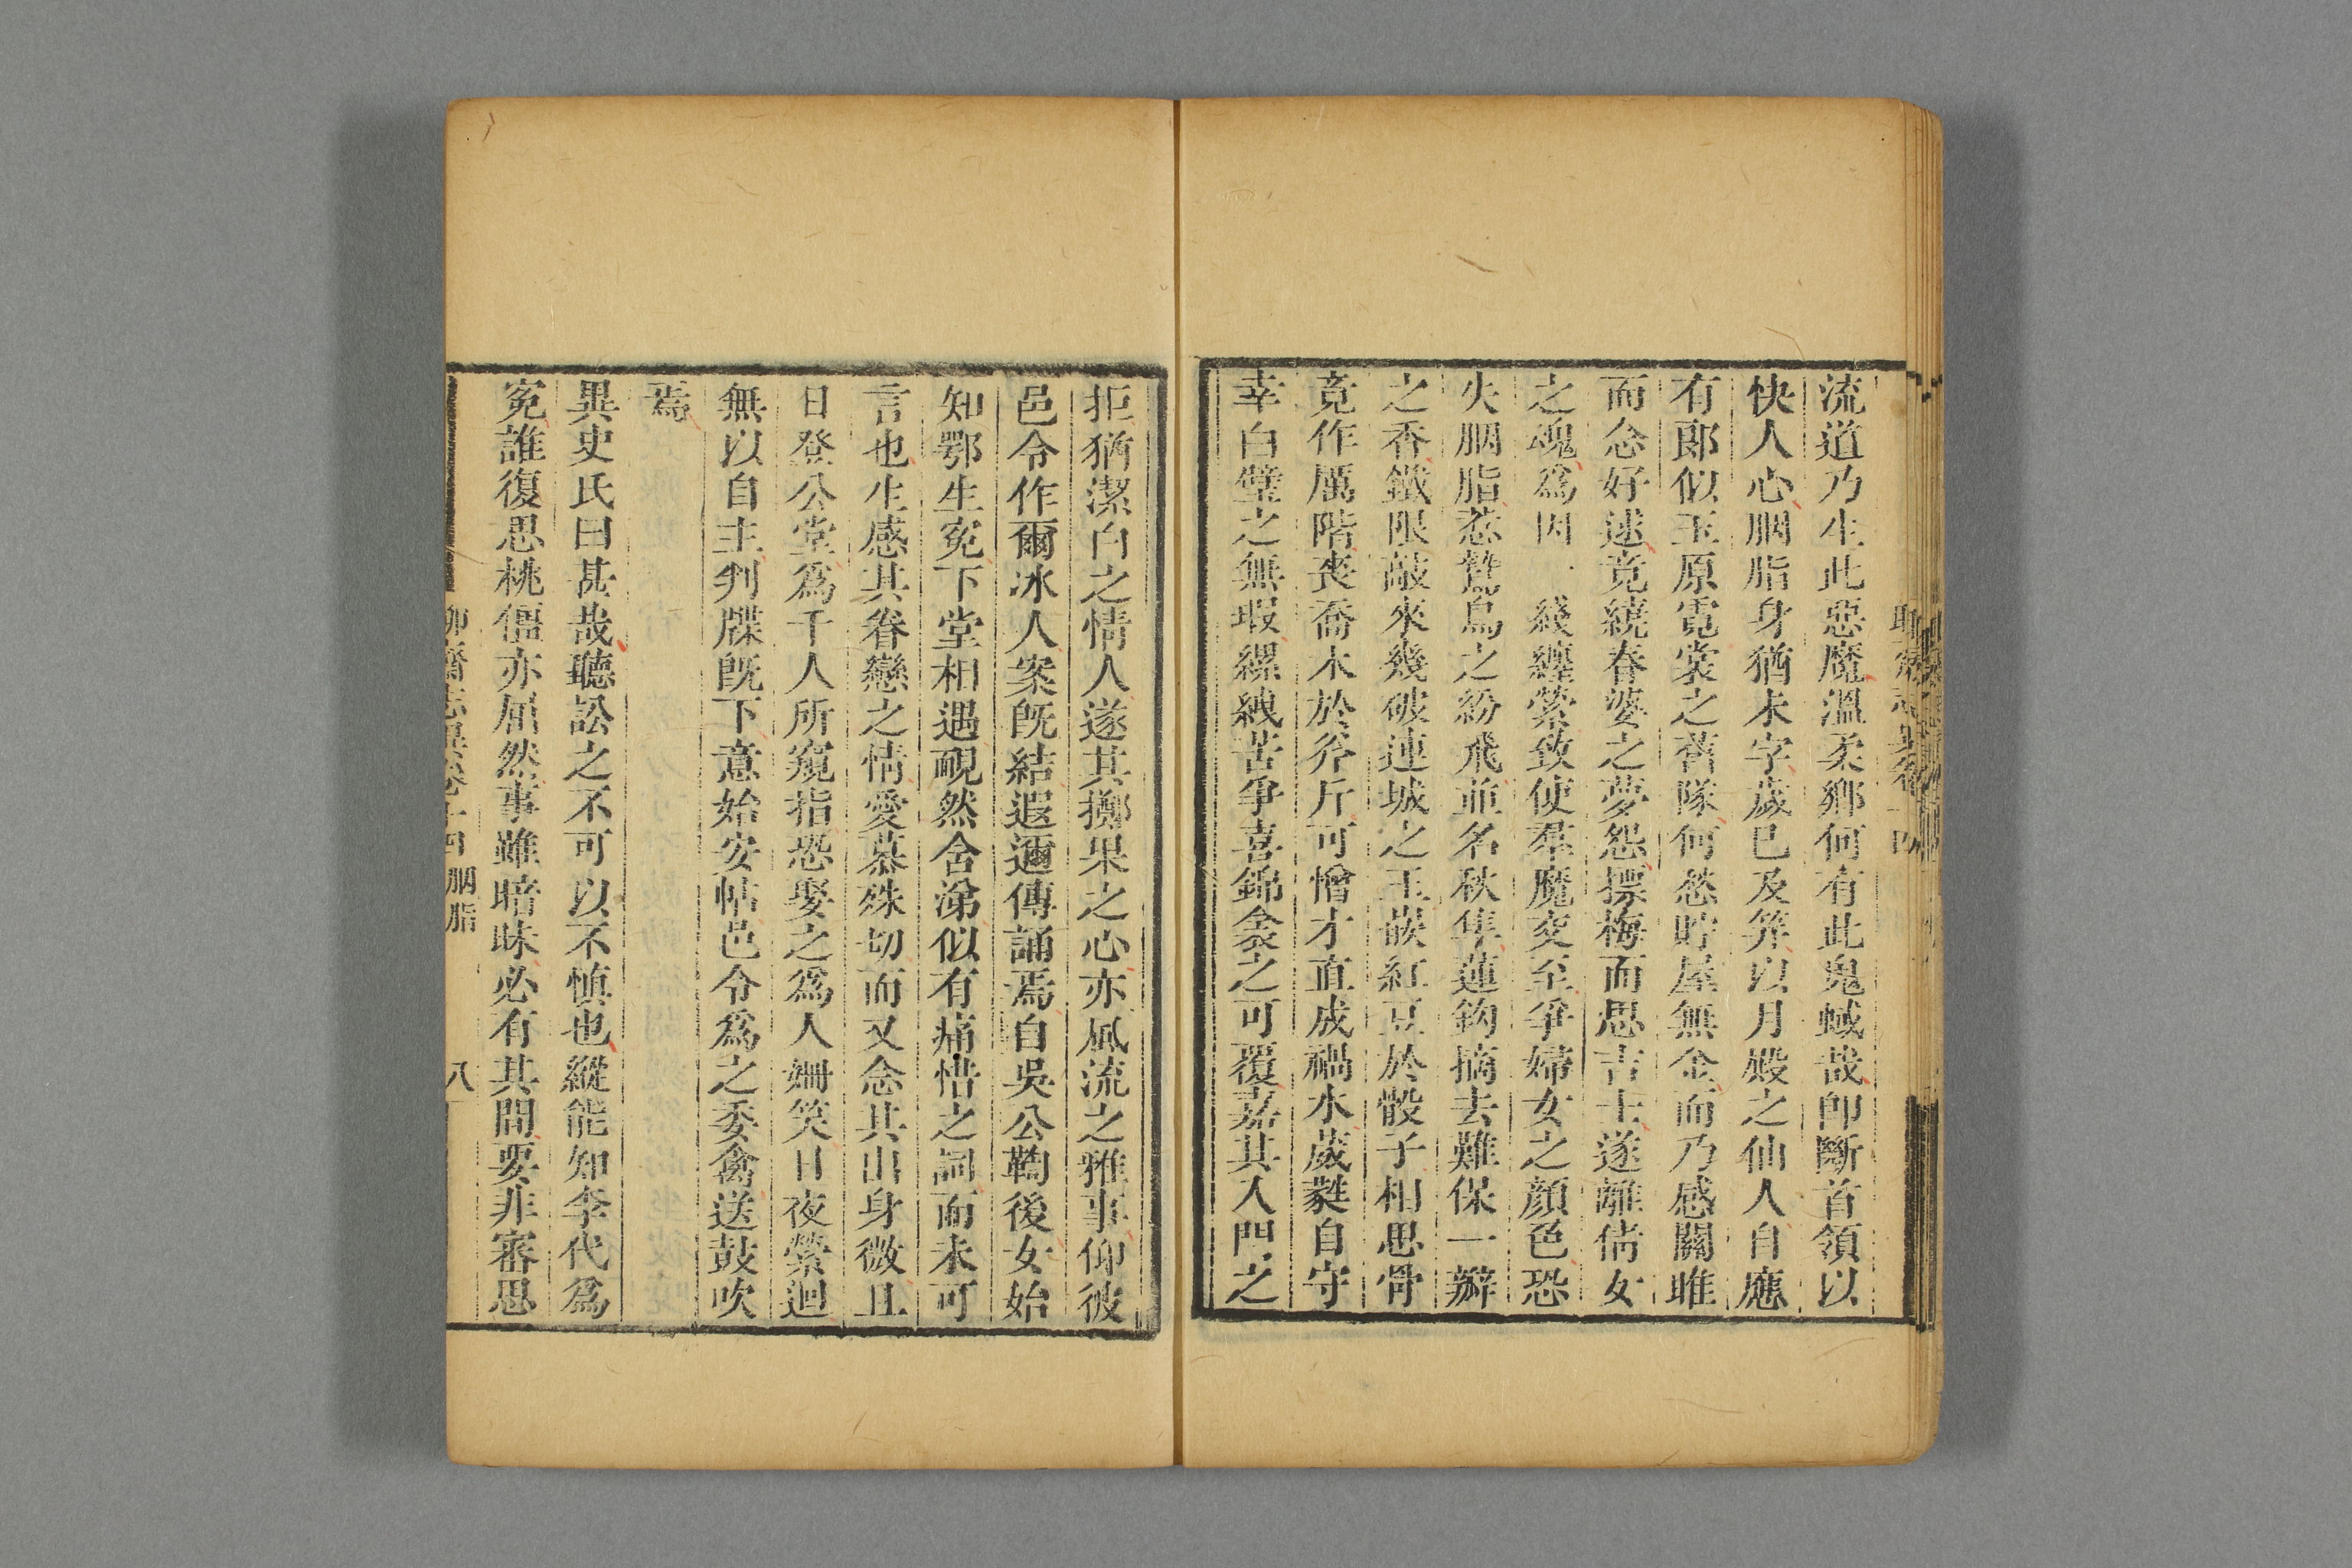 流道乃生此惡魔溫柔鄉何有此鬼蜮哉卽斷首領以
快人心胭脂身猶未字歲已及笄以月殿之仙人自應
有郎似玉原霓裳之舊隊何愁貯屋無金而乃感關雎
而念好逑竟繞春婆之夢怨摽梅而思吉士遂離倩女
之魂爲因一綫纏縈致使羣魔交至爭婦女之顏色恐
失胭脂惹鷙鳥之紛飛並名秋隼蓮鈎摘去難保一瓣
之香鐵限敲來幾破連城之玉嵌紅豆於骰子相思骨
竟作厲階喪喬木於斧斤可憎才直成禍水葳蕤自守
幸白璧之無瑕縲絏苦爭喜錦衾之可覆嘉其入門之
拒猶潔白之情人遂其擲果之心亦風流之雅事仰彼
邑令作爾冰人案旣結遐邇傳誦焉自吳公鞫後女始
知鄂生冤下堂相遇靦然含涕似有痛惜之詞而未可
言也生感其眷戀之情愛慕殊切而又念其出身微且
日登公堂爲千人所窺指恐娶之爲人姍笑日夜縈迴
無以自主判牒旣下意始安帖邑令爲之委禽送鼓吹
焉
異史氏曰甚哉聽訟之不可以不慎也縱能知李代爲
冤誰復思桃僵亦屈然事雖暗昧必有其間要非審思
聊齋志異卷十四 胭脂 八